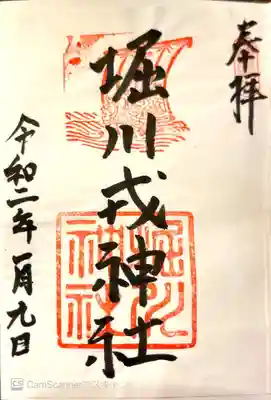 奉拝
堀川戎神社
令和二年一月九日
堀川
神社
CS CamScanner